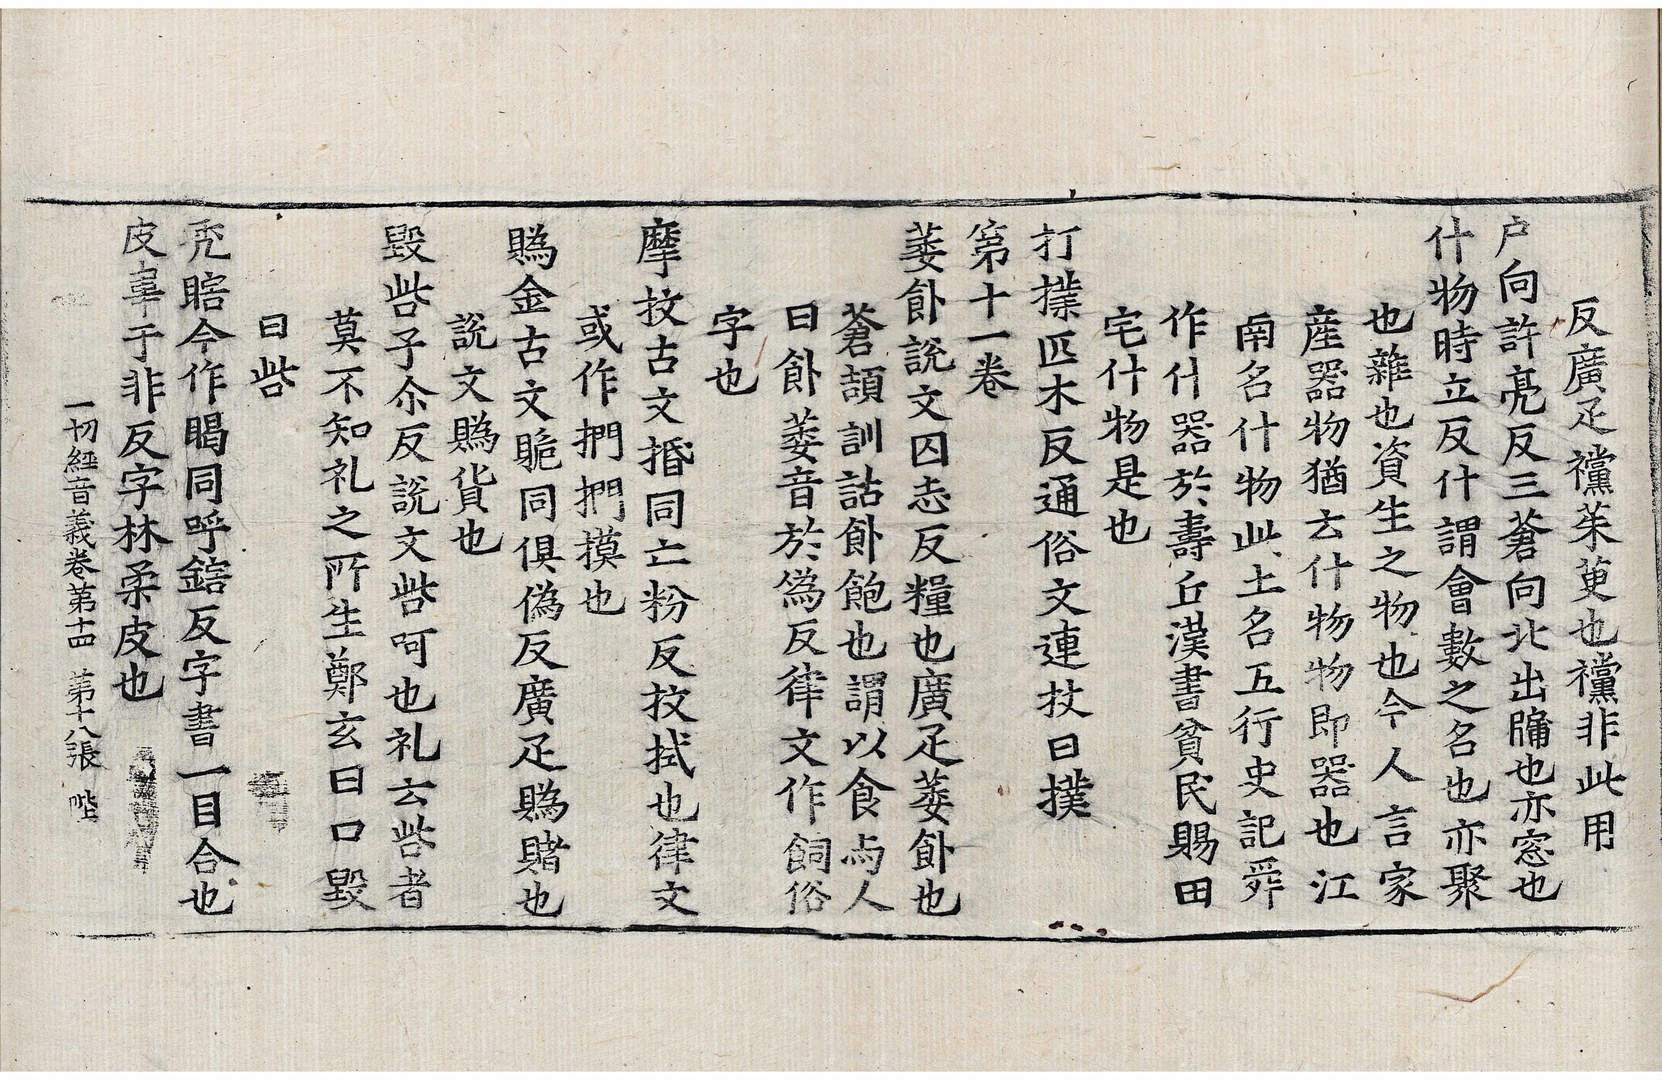 反廣疋欓茱萸也欓非此用
戶向許亮反三蒼向北出牖也亦窓也
什物時立反什謂會數之名也亦聚
也雜也資生之物也今人言家
產器物猶云什物物即器也江
南名什物此土名五行史記舜
作什器於壽丘漢書貧民賜田
宅什物是也
打擈匹木反通俗文連扙曰撲
第十一卷
萎飤說文囚志反糧也廣疋萎飤也
蒼頡訓詁飤飽也謂以食与人
曰飤萎音於僞反律文作飼俗
字也
摩抆古文㨉同亡粉反抆拭也律文
或作捫捫摸也
賜金古文貤同俱僞反廣疋賜賭也
說文賜貨也
毀呰子尒反說文呰呵也礼云呰者
莫不知礼之所生鄭玄曰口毀
曰呰
禿瞎今作䁍同呼鎋反字書一目合也
皮韋于非反字林柔皮也
一切經音義卷第十四 第十八張 陛